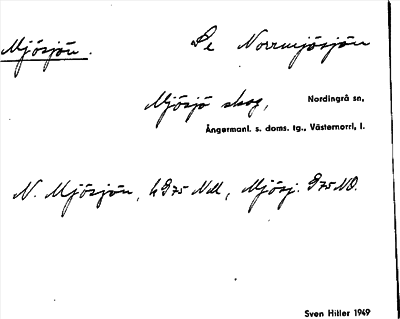 Mjösjön. Se Norrmjösjön
Mjösjö skog, Nordingrå sn,
Ångermanl. s. doms. tg., Västernorrl. l.
N. Mjösjön, h975 NM, Mjösj. 975 NO.
Sven Hitler 1949